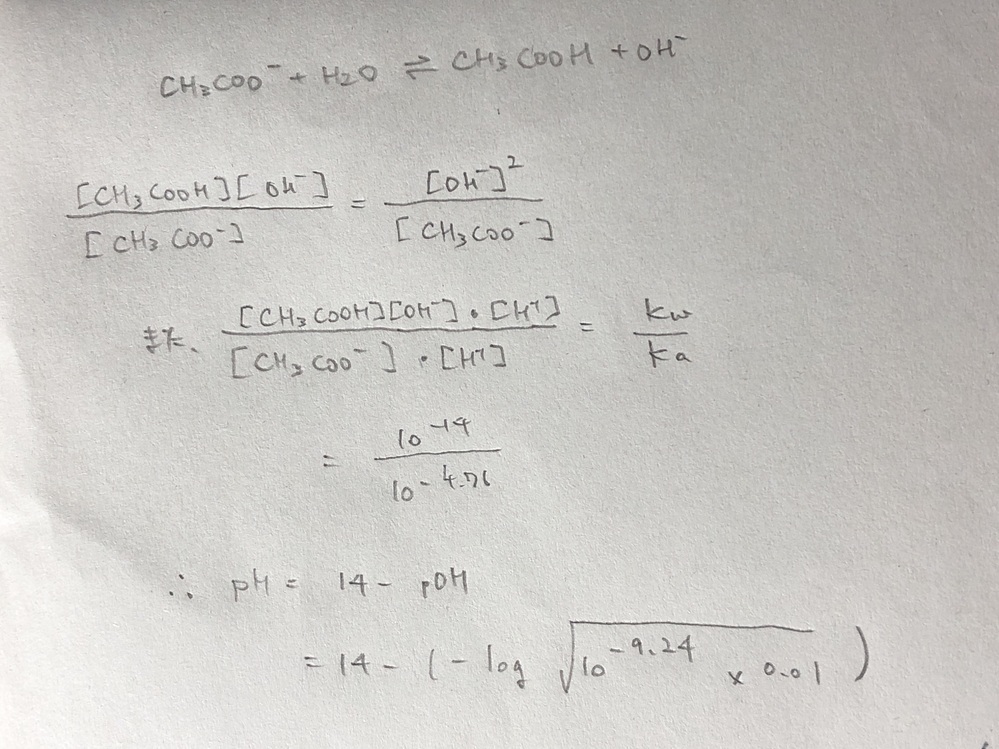 CH₃COO⁻ + H₂O ⇌ CH₃COOH + OH⁻
[CH₃COOH][OH⁻] / [CH₃COO⁻] = [OH⁻]² / [CH₃COO⁻]
また、 [CH₃COOH][OH⁻]・[H⁺] / [CH₃COO⁻]・[H⁺] = kw / ka
= 10⁻¹⁴ / 10⁻⁴·⁷⁶
∴ pH = 14 - pOH
= 14 - (-log √(10⁻⁹·²⁴ × 0.01))